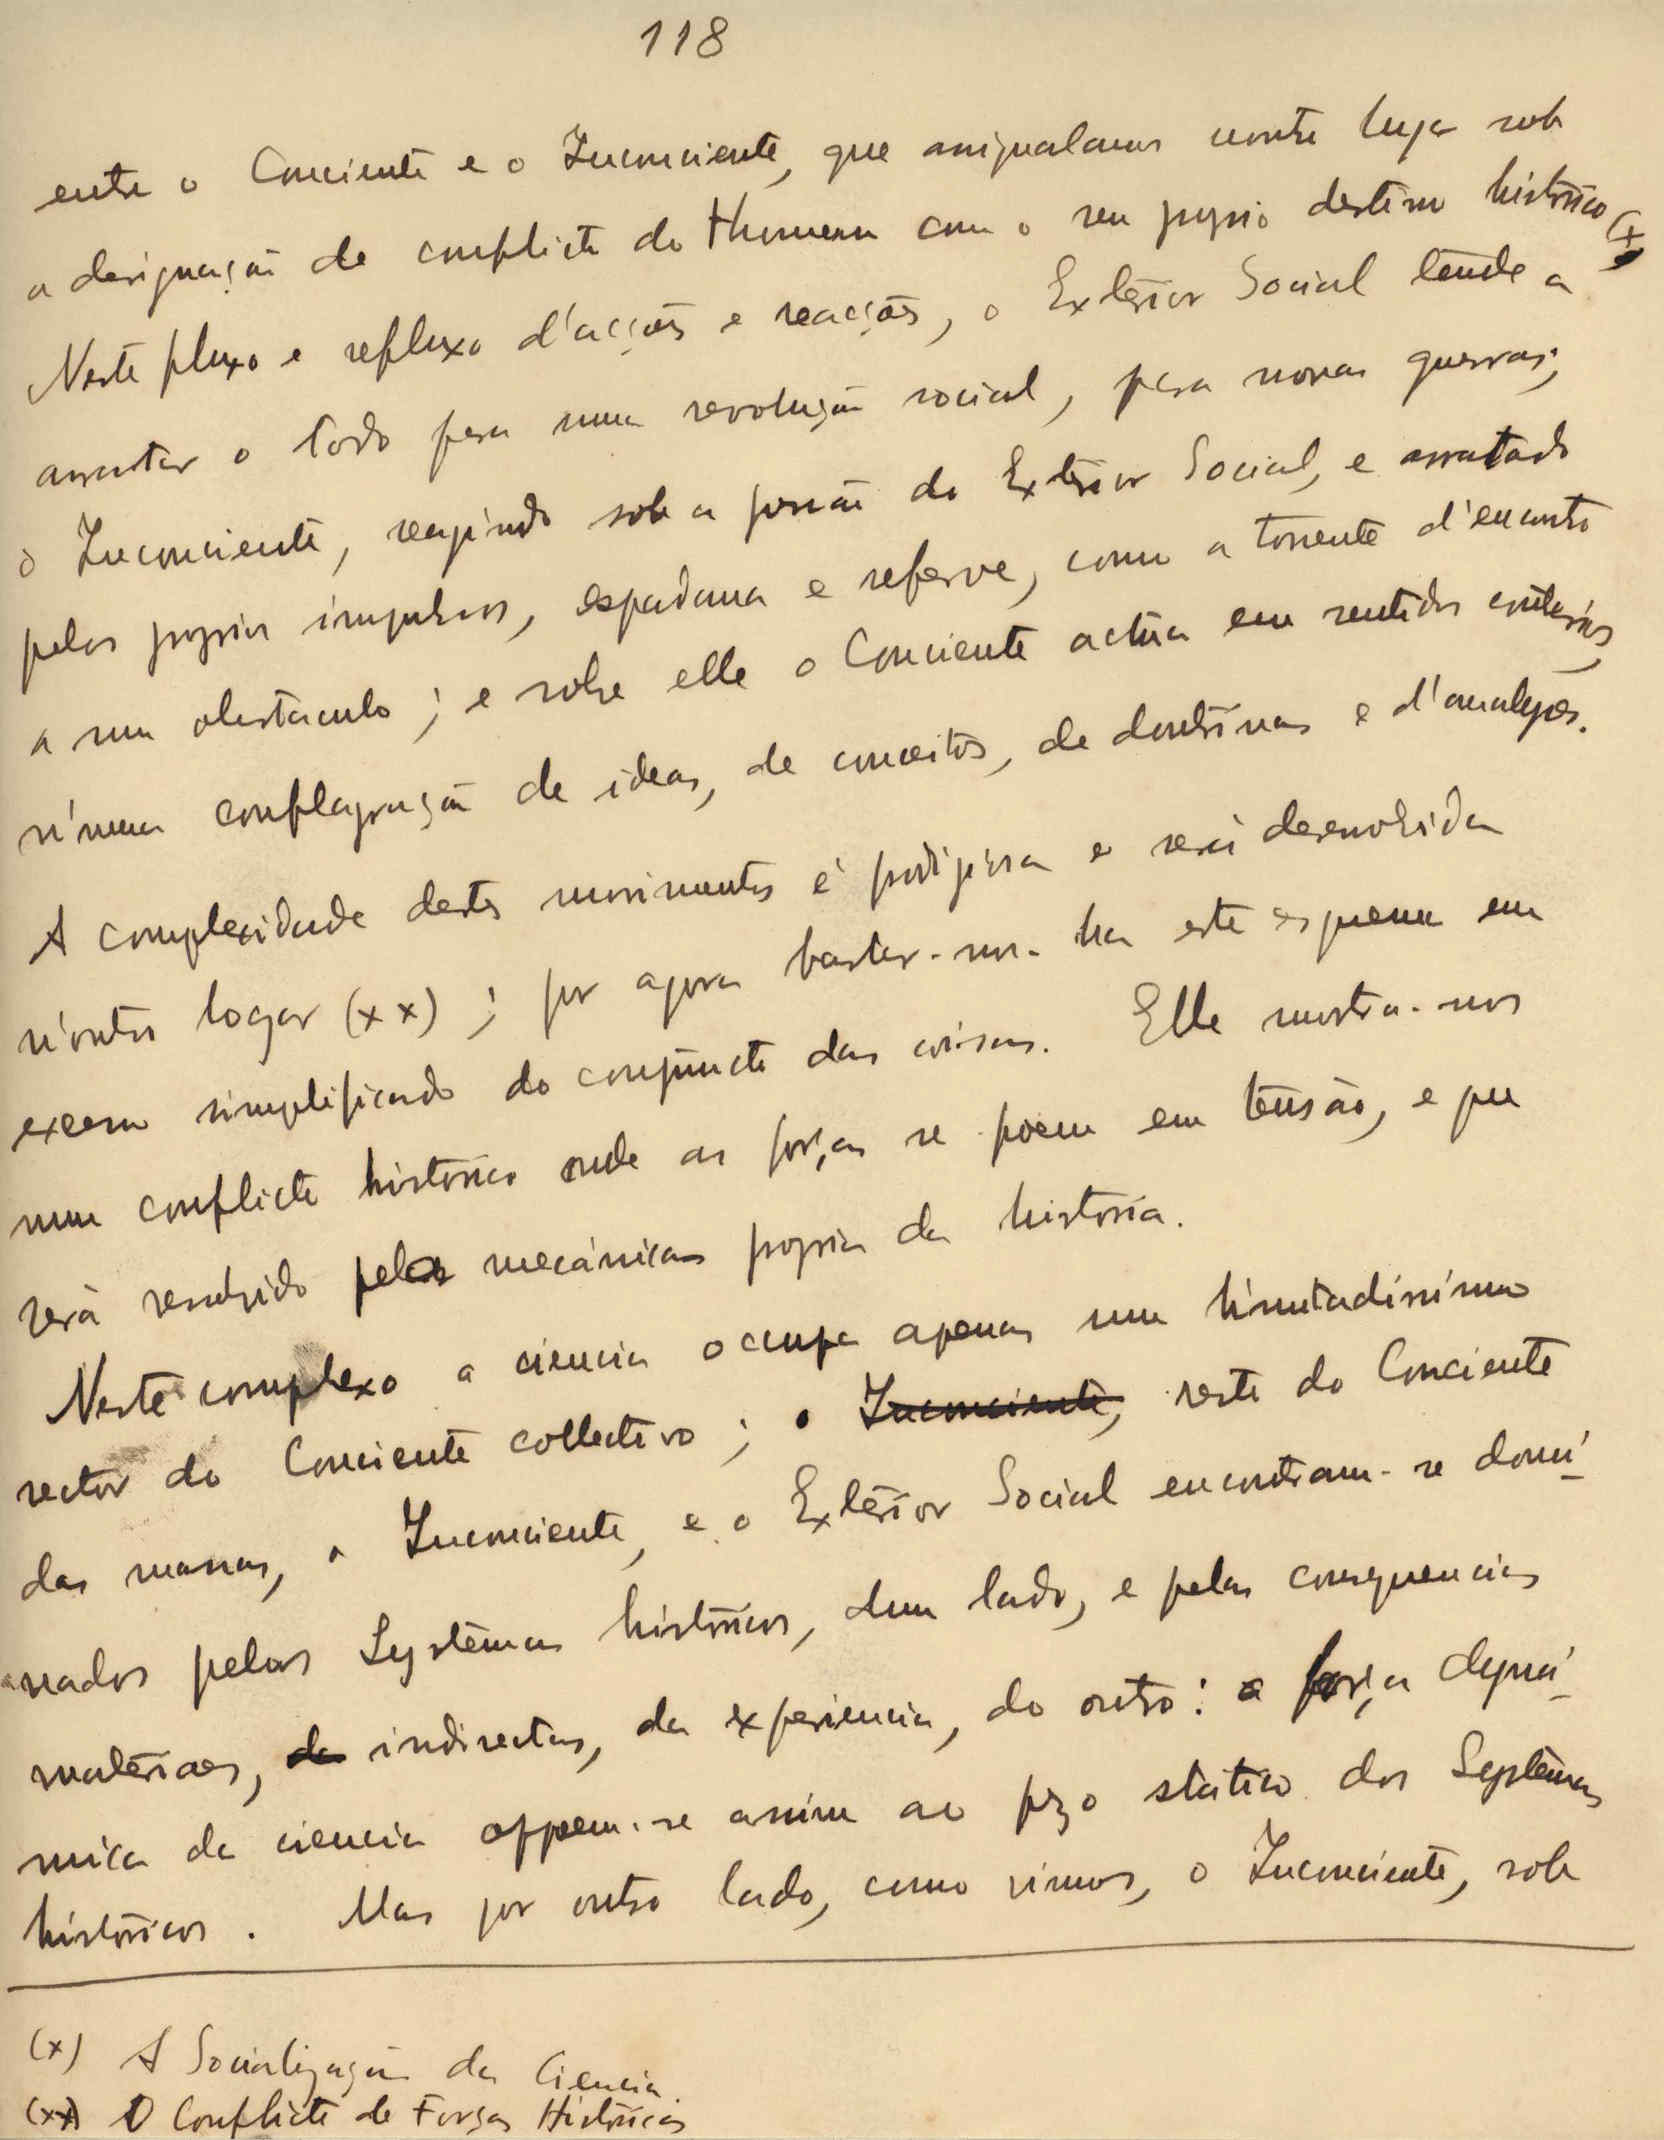 118
entre o Conciente e o Inconciente, que assignalamos noutro lugar sob
a designação de conflicto do Homem com o seu proprio destino histórico (x)
Neste fluxo e refluxo d'acções e reacções, o Extérior Social tende a
arrastar o todo para uma revolução social, para novas guerras;
o Inconciente, reagindo sob a pressão do Extérior Social, e arrastado
pelos proprios impulsos, espadana e referve, como a torrente d'encontro
a um obstaculo; e sobre elle o Conciente actúa em sentidos contrários,
n'uma conflagração de ideas, de conceitos, de doutrinas e d'analyses.
A complexidade destes movimentos é prodigiosa e será desenvolvida
n'outro logar (xx); por agora bastar-nos-ha este esquema em
extremo simplificado do conjuncto das coisas. Elle mostra-nos
um conflicto histórico onde as forças se põem em tensão, e que
será resolvido pelas mecánicas propria da historia.
Neste complexo a ciencia occupa apenas um limitadissimo
sector do Conciente collectivo; o Inconciente, resto do Conciente
das massas, o Inconciente, e o Extérior Social encontram-se domi-
nados pelos Systémas históricos, dum lado, e pelas consequencias
matériaes, da indirectas, da experiencia, do outro: a força dyná-
mica da ciencia oppoem-se assim ao pezo stático dos Systémas
históricos. Mas por outro lado, como vimos, o Inconciente, sob
(x) A Socialização da Ciencia.
(xx) O Conflicto de Forças Históricas